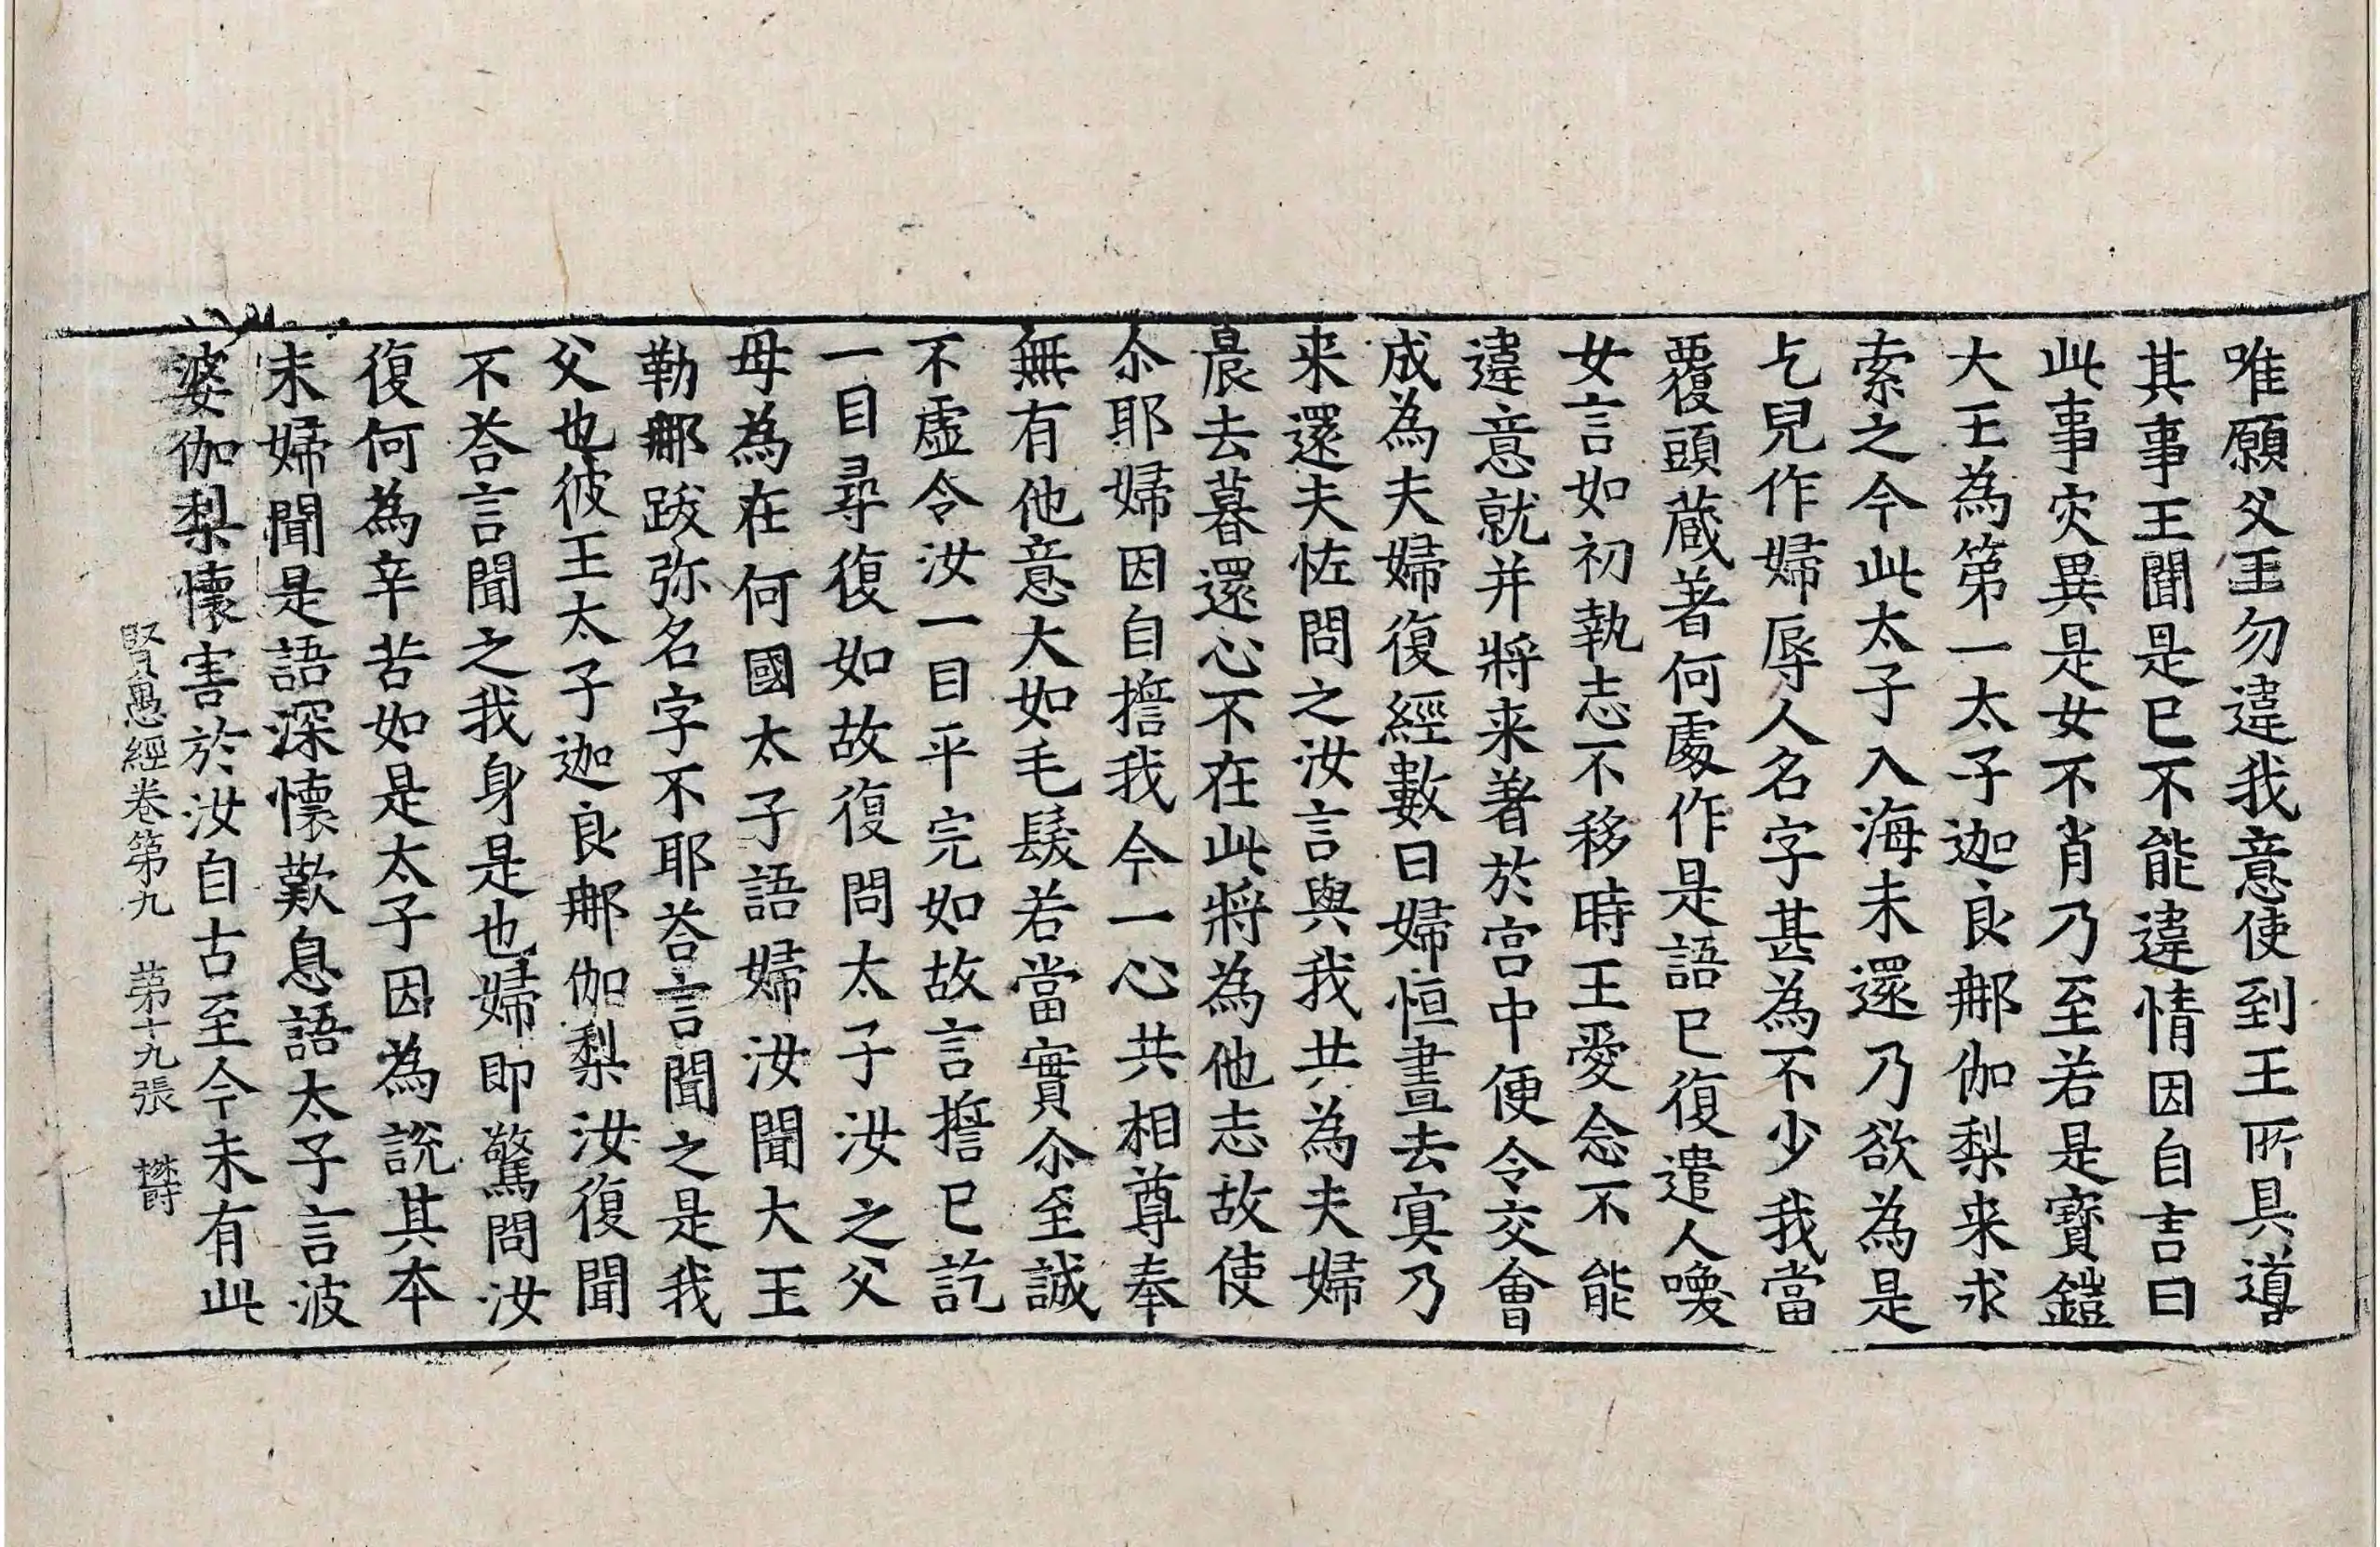 唯願父王勿違我意使到王所具導
其事王聞是已不能違情因自言曰
此事灾異是女不肖乃至若是寶鎧
大王為第一太子迦良那伽梨来求
索之今此太子入海未還乃欲為是
乞兒作婦辱人名字甚為不少我當
覆頭蔵著何處作是語已復遣人喚
女言如初執志不移時王愛念不能
違意就并將来著於宫中便令交會
成為夫婦復經數日婦恒晝去寘乃
来還夫恠問之汝言與我共為夫婦
晨去暮還心不在此將為他志故使
尒耶婦因自擔我今一心共相尊奉
無有他意大如毛髮若當實尒至誠
不虛令汝一目平完如故言擔已訖
一目尋復如故復問太子汝之父
母為在何國太子語婦汝聞大王
勒那跋弥名字不耶荅言聞之是我
父也彼王太子迦良那伽梨汝復聞
不荅言聞之我身是也婦即驚問汝
復何為辛苦如是太子因為說其本
末婦聞是語深懷歎息語太子言波
婆伽梨懷害於汝自古至今未有此
賢愚經卷第九　第十九張　欝